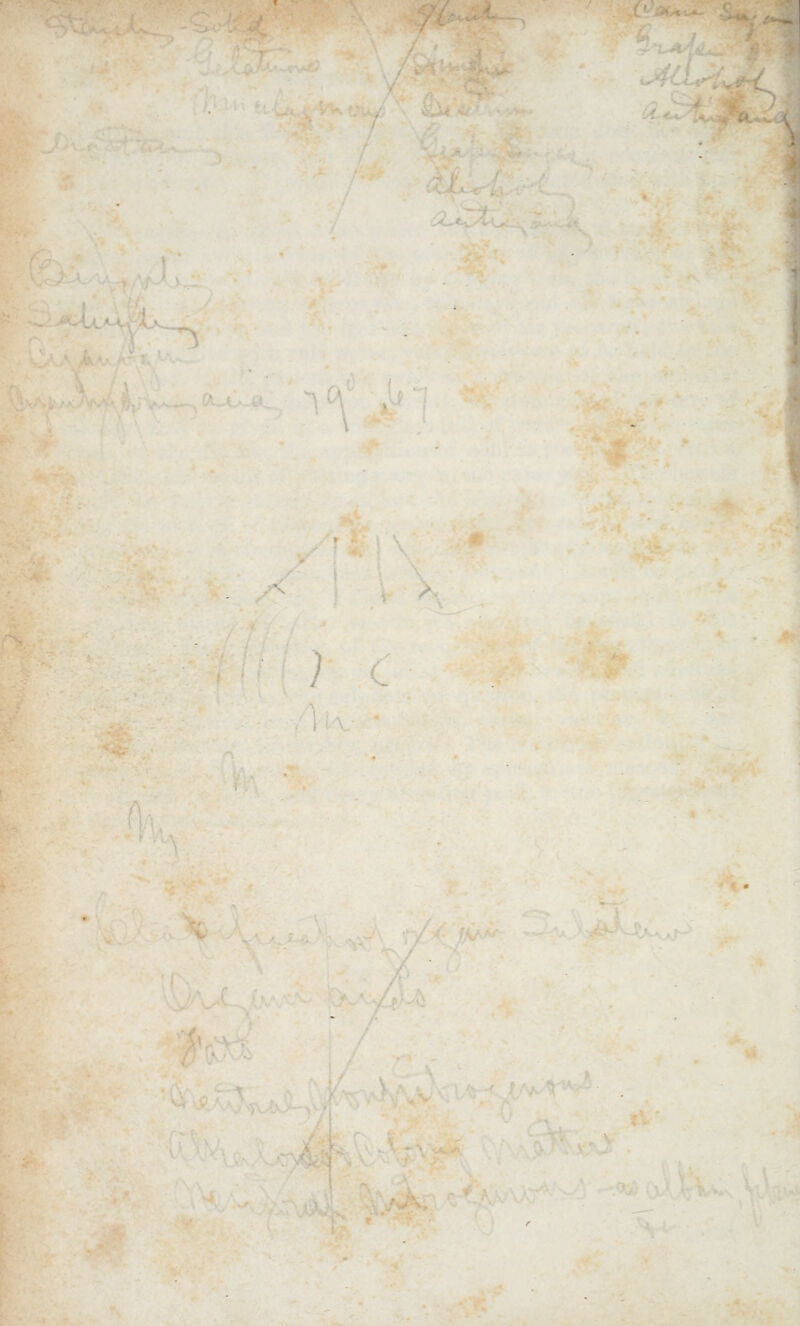 Starch - Solid
Gelatinous
Mucilaginous
Diastase
Starch
Dextrine
Grape Sugar
Alcohol
Acetic acid
Cane Sugar
Grape "
Alcohol
Acetic acid
Benzyle
Salicyle
Cyanogen
Cyanhydric acid 79° .67
) (
m
m
Classification of organic Substances
Organic acids
Fats
Neutral Nonnitrogenous
Alkaloids & Coloring Matters
Neutral Nitrogenous - as album, fibrin
&c